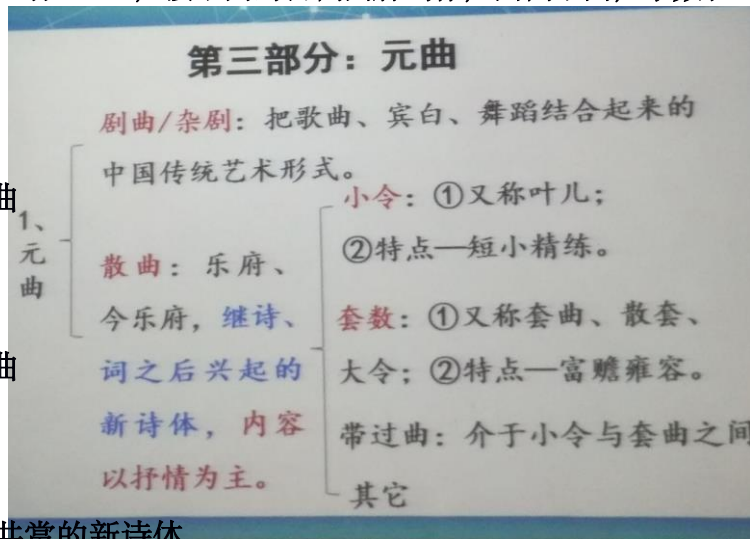 第三部分：元曲
剧曲/杂剧：把歌曲、宾白、舞蹈结合起来的
中国传统艺术形式。
曲
1、
元
曲
散曲：乐府、
今乐府，继诗、
词之后兴起的
新诗体，内容
以抒情为主。
小令：①又称叶儿；
②特点—短小精练。
套数：①又称套曲、散套、
大令；②特点—富赡雍容。
带过曲：介于小令与套曲之间
其它
曲
共赏的新诗体